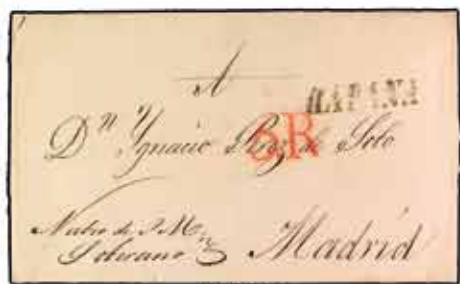 A
HABANA
Dn Ygnacio Perez de Soto
6R
Soberano
Madrid